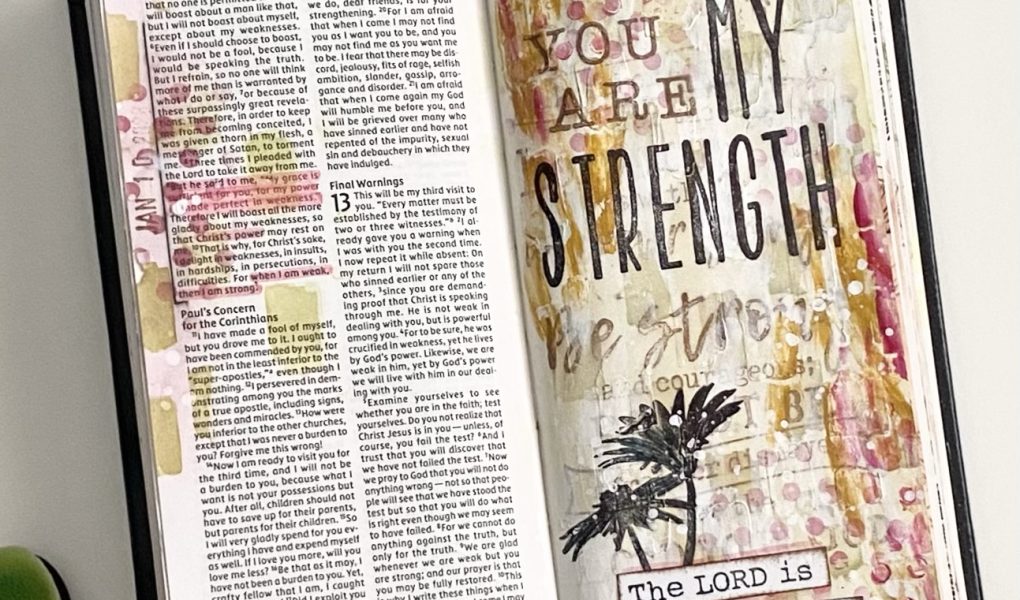 that no one is
will boast about a man like that,
but I will not boast about myself,
except about my weaknesses.
⁶Even if I should choose to boast,
I would not be a fool, because I
would be speaking the truth.
But I refrain, so no one will think
more of me than is warranted by
what I do or say, ⁷or because of
these surpassingly great revela-
tions. Therefore, in order to keep
me from becoming conceited, I
was given a thorn in my flesh, a
messenger of Satan, to torment
me. ⁸Three times I pleaded with
the Lord to take it away from me.
⁹But he said to me, "My grace is
sufficient for you, for my power
is made perfect in weakness."
Therefore I will boast all the more
gladly about my weaknesses, so
that Christ's power may rest on
me. ¹⁰That is why, for Christ's sake,
I delight in weaknesses, in insults,
in hardships, in persecutions, in
difficulties. For when I am weak,
then I am strong.
Paul's Concern
for the Corinthians
¹¹I have made a fool of myself,
but you drove me to it. I ought to
have been commended by you, for
I am not in the least inferior to the
"super-apostles," even though I
am nothing. ¹²I persevered in dem-
onstrating among you the marks
of a true apostle, including signs,
wonders and miracles. ¹³How were
you inferior to the other churches,
except that I was never a burden to
you? Forgive me this wrong!
¹⁴Now I am ready to visit you for
the third time, and I will not be
a burden to you, because what I
want is not your possessions but
you. After all, children should not
have to save up for their parents,
but parents for their children. ¹⁵So
I will very gladly spend for you ev-
erything I have and expend myself
as well. If I love you more, will you
love me less? ¹⁶Be that as it may, I
have not been a burden to you. Yet,
crafty fellow that I am, I caught
exploit you
we do, dear friends, is for your
strengthening. ²⁰For I am afraid
that when I come I may not find
you as I want you to be, and you
may not find me as you want me
to be. I fear that there may be dis-
cord, jealousy, fits of rage, selfish
ambition, slander, gossip, arro-
gance and disorder. ²¹I am afraid
that when I come again my God
will humble me before you, and
I will be grieved over many who
have sinned earlier and have not
repented of the impurity, sexual
sin and debauchery in which they
have indulged.
Final Warnings
13 This will be my third visit to
you. "Every matter must be
established by the testimony of
two or three witnesses." ²I al-
ready gave you a warning when
I was with you the second time.
I now repeat it while absent: On
my return I will not spare those
who sinned earlier or any of the
others, ³since you are demand-
ing proof that Christ is speaking
through me. He is not weak in
dealing with you, but is powerful
among you. ⁴For to be sure, he was
crucified in weakness, yet he lives
by God's power. Likewise, we are
weak in him, yet by God's power
we will live with him in our deal-
ing with you.
⁵Examine yourselves to see
whether you are in the faith; test
yourselves. Do you not realize that
Christ Jesus is in you — unless, of
course, you fail the test? ⁶And I
trust that you will discover that
we have not failed the test. ⁷Now
we pray to God that you will not do
anything wrong — not so that peo-
ple will see that we have stood the
test but so that you will do what
is right even though we may seem
to have failed. ⁸For we cannot do
anything against the truth, but
only for the truth. ⁹We are glad
whenever we are weak but you
are strong; and our prayer is that
you may be fully restored. ¹⁰This
is why I write these things when I
JAN 10
YOU
ARE MY
STRENGTH
be strong
and courageous;
The LORD is